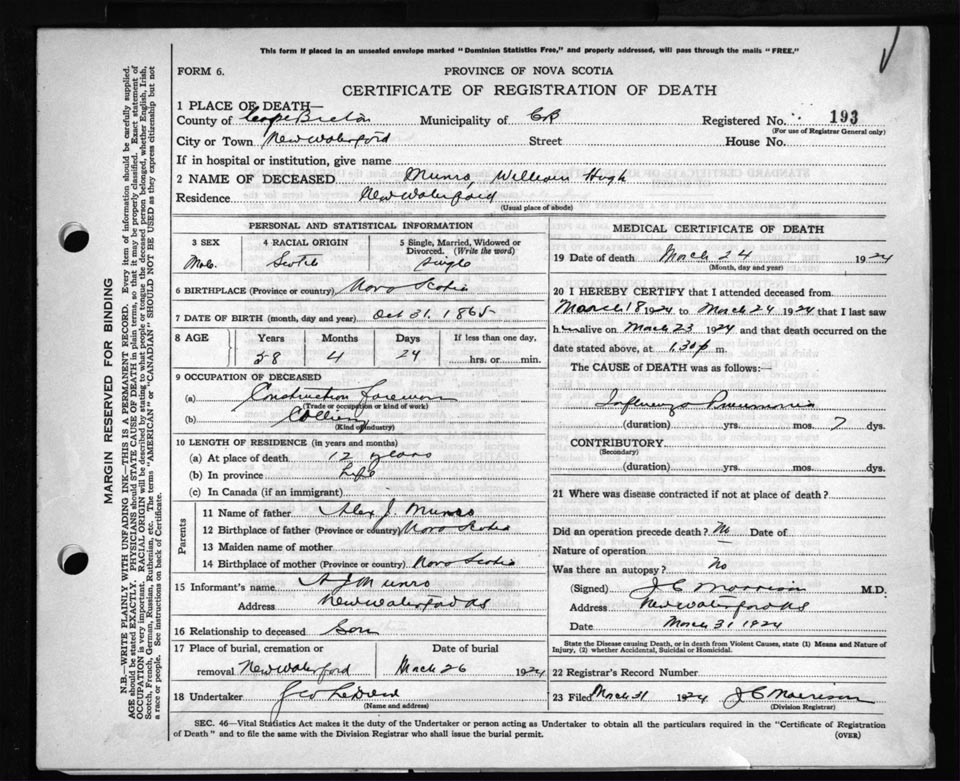 This form if placed in an unsealed envelope marked "Dominion Statistics Free," and properly addressed, will pass through the mails "FREE."
FORM 6.
PROVINCE OF NOVA SCOTIA
CERTIFICATE OF REGISTRATION OF DEATH
1 PLACE OF DEATH—
County of Cape Breton Municipality of CB Registered No. 193
(For use of Registrar General only)
City or Town New Waterford Street House No.
If in hospital or institution, give name
2 NAME OF DECEASED Munro, William Hugh
Residence New Waterford
(Usual place of abode)
PERSONAL AND STATISTICAL INFORMATION
3 SEX 4 RACIAL ORIGIN 5 Single, Married, Widowed or Divorced. (Write the word)
Scotch single
6 BIRTHPLACE (Province or country) Nova Scotia
7 DATE OF BIRTH (month, day and year) Oct 31. 1865
8 AGE Years Months Days If less than one day,
58 4 24 hrs. or min.
9 OCCUPATION OF DECEASED
(a) Construction foreman
(Trade or occupation or kind of work)
(b) Colliery
(Kind of industry)
10 LENGTH OF RESIDENCE (in years and months)
(a) At place of death 12 years
(b) In province Life
(c) In Canada (if an immigrant)
Parents
11 Name of father Alex J. Munro
12 Birthplace of father (Province or country) Nova Scotia
13 Maiden name of mother
14 Birthplace of mother (Province or country) Nova Scotia
15 Informant's name A J Munro
Address New Waterford NS
16 Relationship to deceased Son
17 Place of burial, cremation or Date of burial
removal New Waterford March 26 1924
18 Undertaker Geo
(Name and address)
MEDICAL CERTIFICATE OF DEATH
19 Date of death March 24 1924
(Month, day and year)
20 I HEREBY CERTIFY that I attended deceased from
March 18 1924 to March 24 1924 that I last saw
him alive on March 23 1924 and that death occurred on the
date stated above, at 1.30 p m.
The CAUSE of DEATH was as follows:—
Influenza Pneumonia
(duration) yrs. mos. 7 dys.
CONTRIBUTORY
(Secondary)
(duration) yrs. mos. dys.
21 Where was disease contracted if not at place of death?
Did an operation precede death? No Date of
Nature of operation
Was there an autopsy? No
(Signed) J C Morrison M.D.
Address New Waterford NS
Date March 31 1924
State the Disease causing Death, or in death from Violent Causes, state (1) Means and Nature of
Injury, (2) whether Accidental, Suicidal or Homicidal.
22 Registrar's Record Number
23 Filed March 31 1924 J C Morrison
(Division Registrar)
SEC. 46—Vital Statistics Act makes it the duty of the Undertaker or person acting as Undertaker to obtain all the particulars required in the "Certificate of Registration
of Death" and to file the same with the Division Registrar who shall issue the burial permit. (OVER)
MARGIN RESERVED FOR BINDING
N.B.—WRITE PLAINLY WITH UNFADING INK—THIS IS A PERMANENT RECORD. Every item of information should be carefully supplied.
AGE should be stated EXACTLY. PHYSICIANS should STATE CAUSE OF DEATH in plain terms, so that it may be properly classified. Exact statement of
OCCUPATION is very important. RACIAL ORIGIN will be described by stating to what people or tongue the deceased person belonged, whether English, Irish,
Scotch, French, German, Russian, Ruthenian, etc. The terms "AMERICAN" or "CANADIAN" SHOULD NOT BE USED as they express citizenship but not
a race or people. See instructions on back of Certificate.